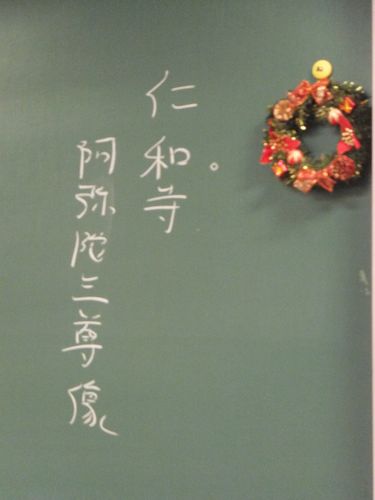 仁和寺
阿弥陀三尊像